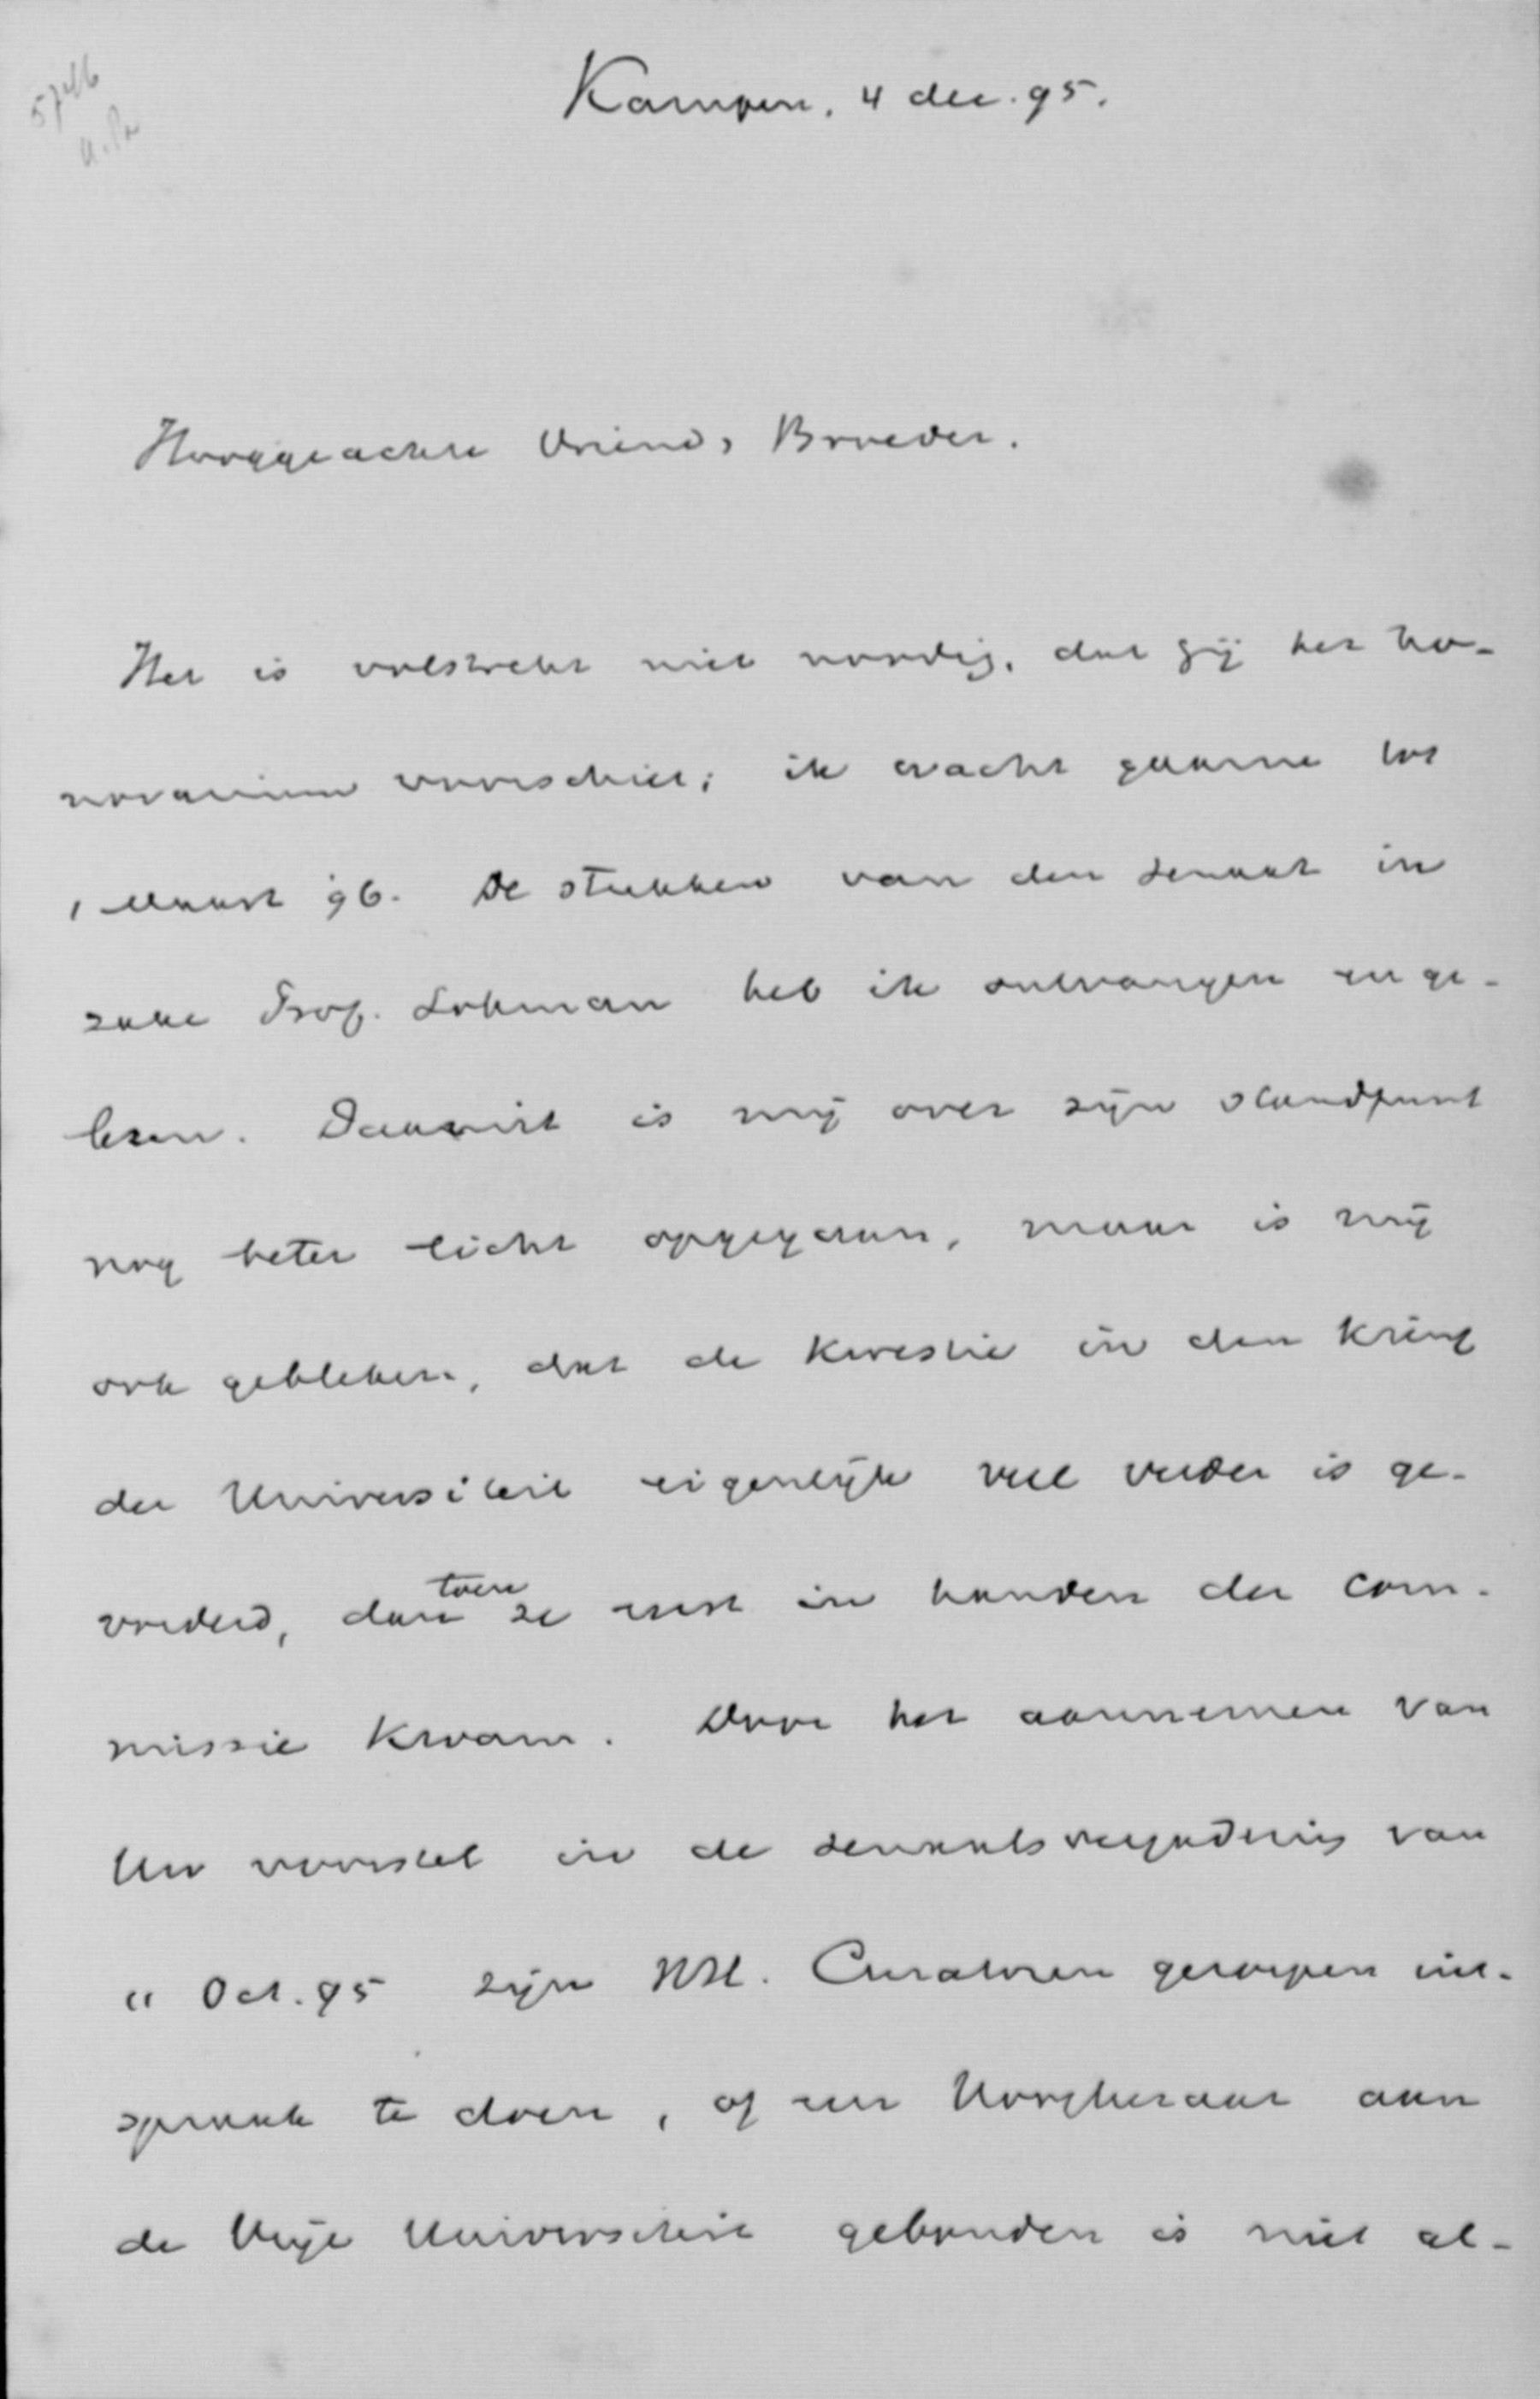 5746
Kampen, 4 dec. 95.
Hooggeachte Vriend & Broeder.
Het is volstrekt niet noodig, dat gij het ho-
norarium voorschiet; ik wacht gaarne tot
1 Maart 96. De stukken van den senaat in
zake Prof. Lohman heb ik ontvangen en ge-
lezen. Daaruit is mij over zijn standpunt
nog beter licht opgegaan, maar is mij
ook gebleken, dat de kwestie in den kring
der Universiteit eigenlijk veel verder is ge-
vorderd, dan toen ze eerst in handen der com-
missie kwam. Door het aannemen van
Uw voorstel in de senaatsvergadering van
11 Oct. 95 zijn HH. Curatoren geroepen uit-
spraak te doen, of een Hoogleeraar aan
de Vrije Universiteit gebonden is niet al-